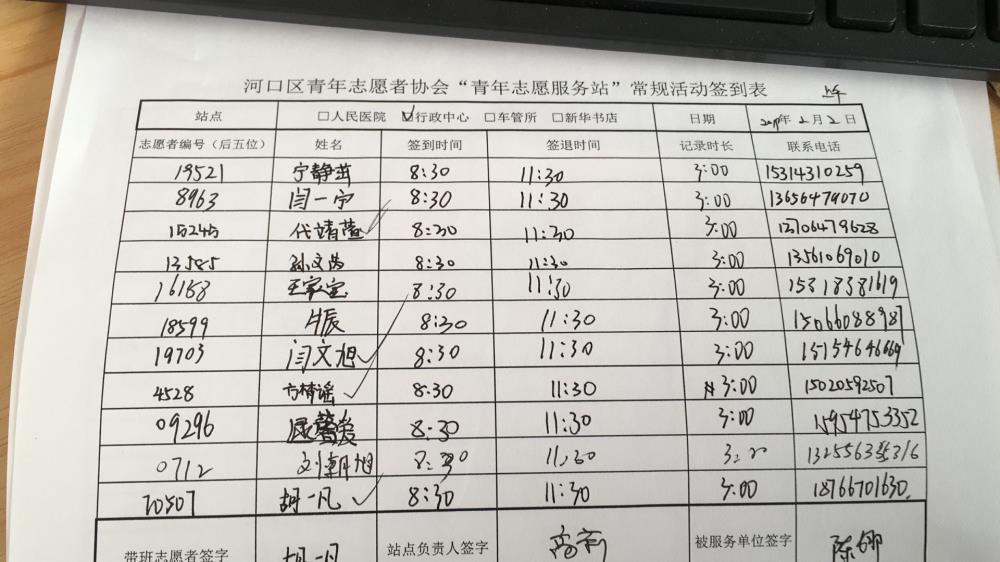 河口区青年志愿者协会“青年志愿服务站”常规活动签到表 上午
站点 □人民医院 ☑行政中心 □车管所 □新华书店 日期 2019年2月2日
志愿者编号（后五位） 姓名 签到时间 签退时间 记录时长 联系电话
19521 宁静茁 8:30 11:30 3:00 15314310259
8963 闫一宁 8:30 11:30 3:00 13656479070
15245 代靖萱 8:30 11:30 3:00 13706479628
13585 孙文 8:30 11:30 3:00 13561069010
16158 王家宝 8:30 11:30 3:00 15318381619
18599 8:30 11:30 3:00 15066088987
19703 闫文旭 8:30 11:30 3:00 15154646669
4528 方精谣 8:30 11:30 3:00 15020592507
09296 8:30 11:30 3:00 15954753352
0712 刘朝旭 8:30 11:30 3:00
20507 胡一凡 8:30 11:30 3:00 18766701630
带班志愿者签字 胡一凡 站点负责人签字 被服务单位签字 陈娜